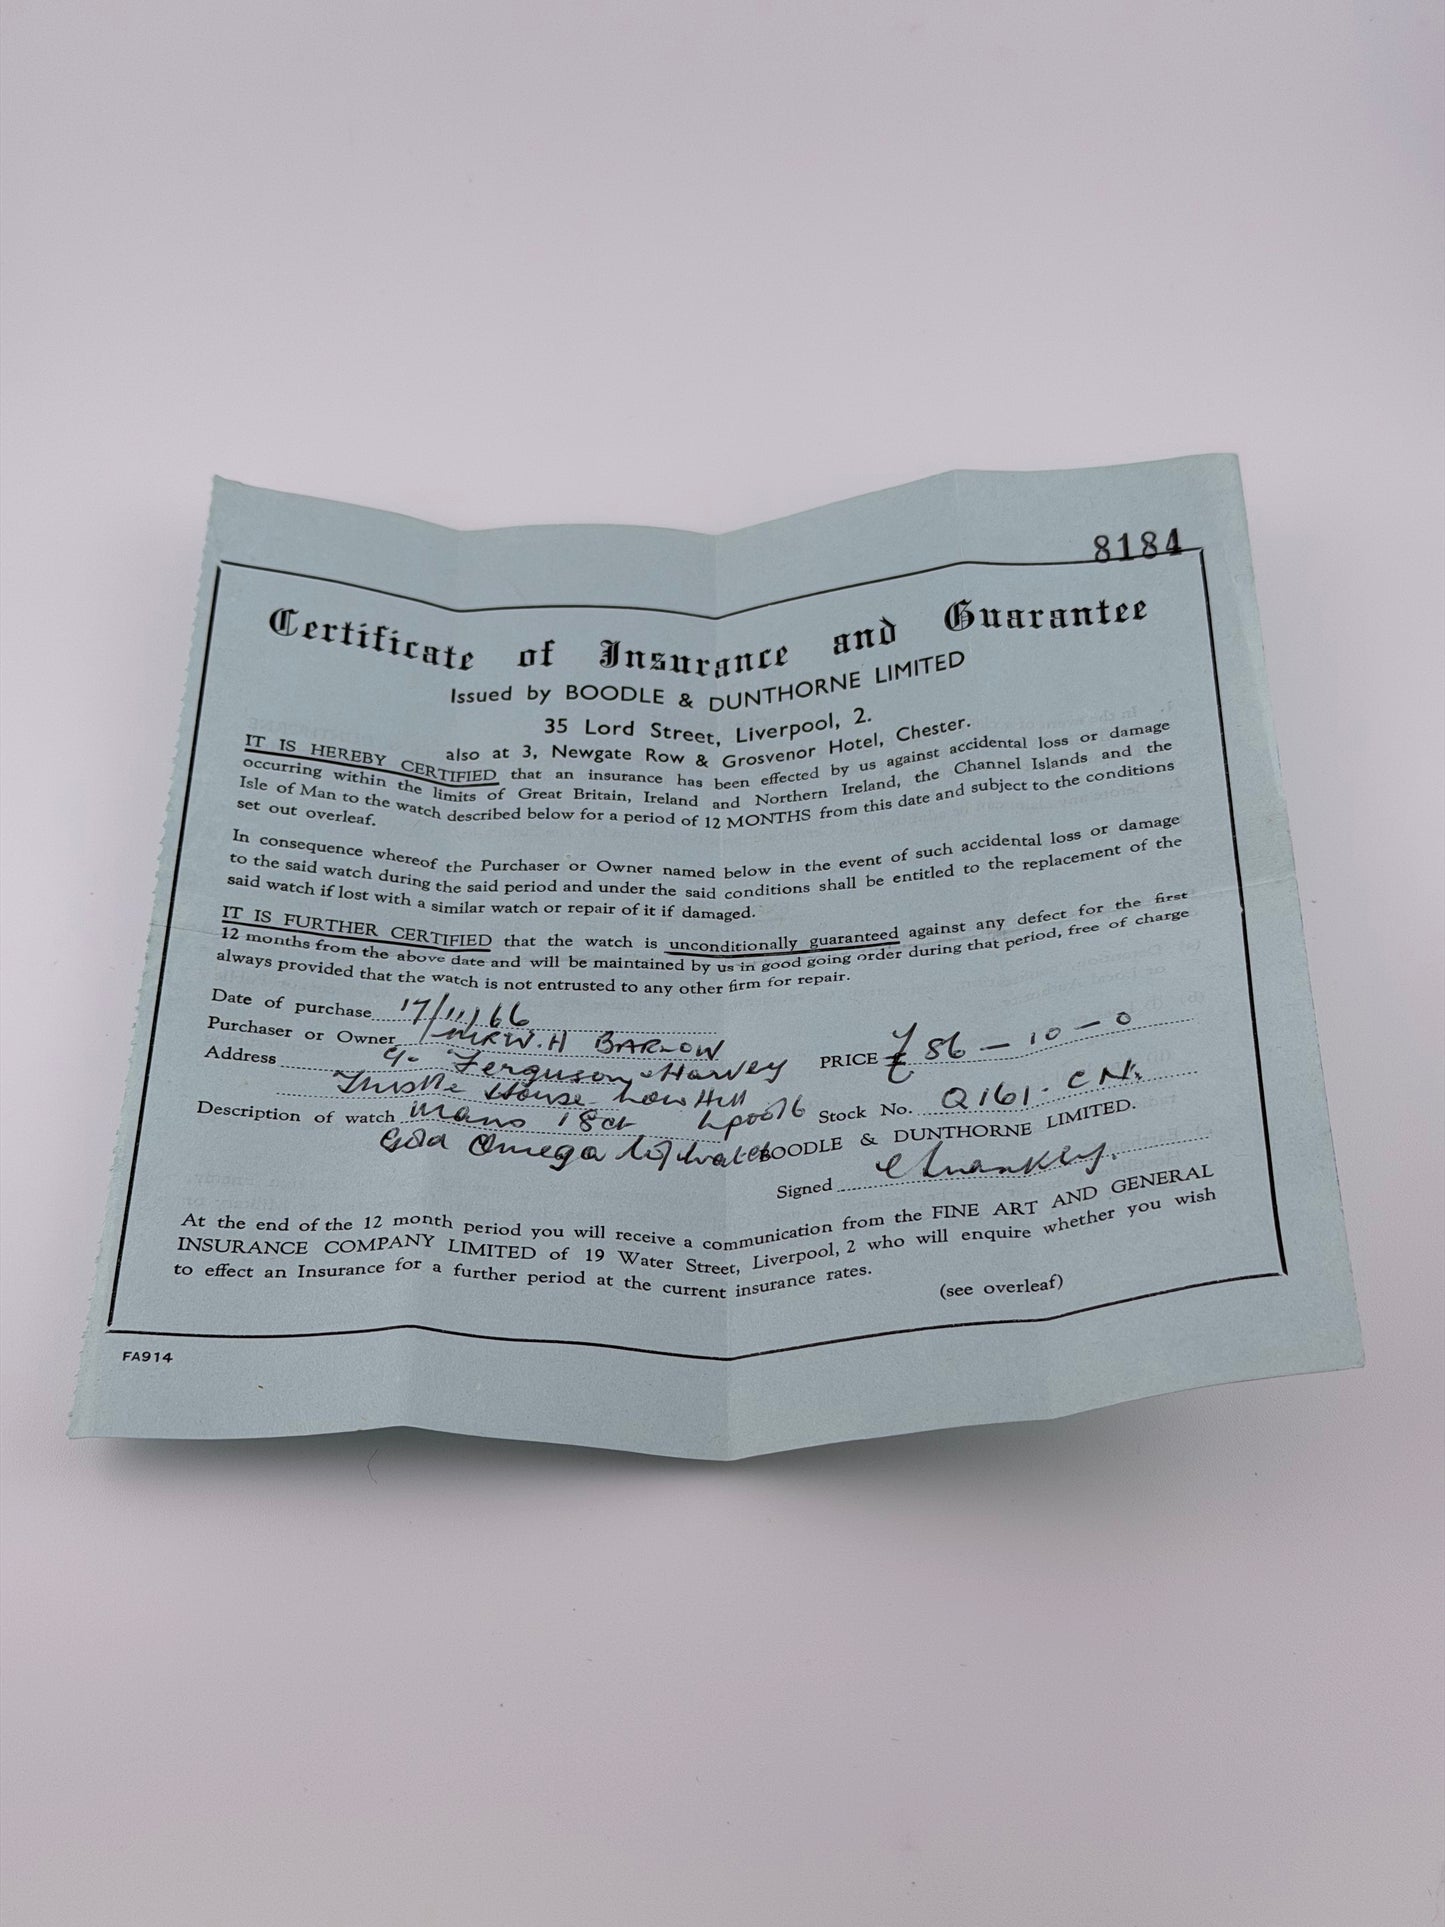 8184
Certificate of Insurance and Guarantee
Issued by BOODLE & DUNTHORNE LIMITED
35 Lord Street, Liverpool, 2.
also at 3, Newgate Row & Grosvenor Hotel, Chester.
IT IS HEREBY CERTIFIED that an insurance has been effected by us against accidental loss or damage
occurring within the limits of Great Britain, Ireland and Northern Ireland, the Channel Islands and the
Isle of Man to the watch described below for a period of 12 MONTHS from this date and subject to the conditions
set out overleaf.
In consequence whereof the Purchaser or Owner named below in the event of such accidental loss or damage
to the said watch during the said period and under the said conditions shall be entitled to the replacement of the
said watch if lost with a similar watch or repair of it if damaged.
IT IS FURTHER CERTIFIED that the watch is unconditionally guaranteed against any defect for the first
12 months from the above date and will be maintained by us in good going order during that period, free of charge
always provided that the watch is not entrusted to any other firm for repair.
Date of purchase 17/11/66
Purchaser or Owner Mr W. H BARLOW
PRICE £86-10-0
Address c/o Ferguson & Harvey
Thistle House Low Hill
L'pool 6
Stock No. Q161.CN.
Description of watch Mans 18ct
Gold Omega w/watch
BOODLE & DUNTHORNE LIMITED.
Signed
At the end of the 12 month period you will receive a communication from the FINE ART AND GENERAL
INSURANCE COMPANY LIMITED of 19 Water Street, Liverpool, 2 who will enquire whether you wish
to effect an Insurance for a further period at the current insurance rates.
(see overleaf)
FA914